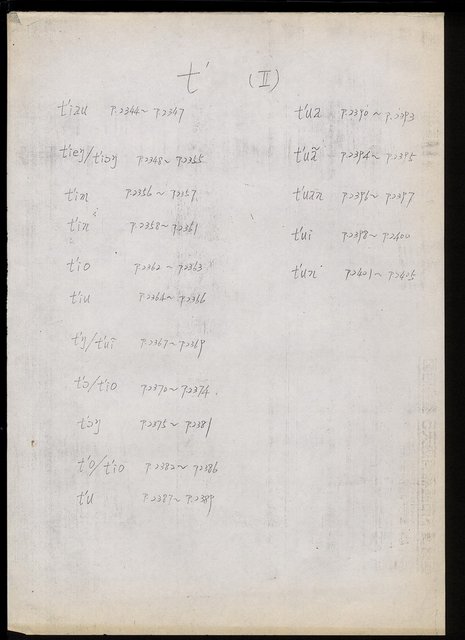 t' (II)
t'iau p.2344~p.2347
t'ieŋ/t'iɔŋ p.2348~p.2355
t'im p.2356~p.2357
t'in p.2358~p.2361
t'io p.2362~p.2363
t'iu p.2364~p.2366
t'ŋ/t'uĩ p.2367~p.2369
t'ɔ/t'io p.2370~p.2374
t'ɔŋ p.2375~p.2381
t'o/t'io p.2382~p.2386
t'u p.2387~p.2389
t'ua p.2390~p.2393
t'uã p.2394~p.2395
t'uan p.2396~p.2397
t'ui p.2398~p.2400
t'un p.2401~p.2405